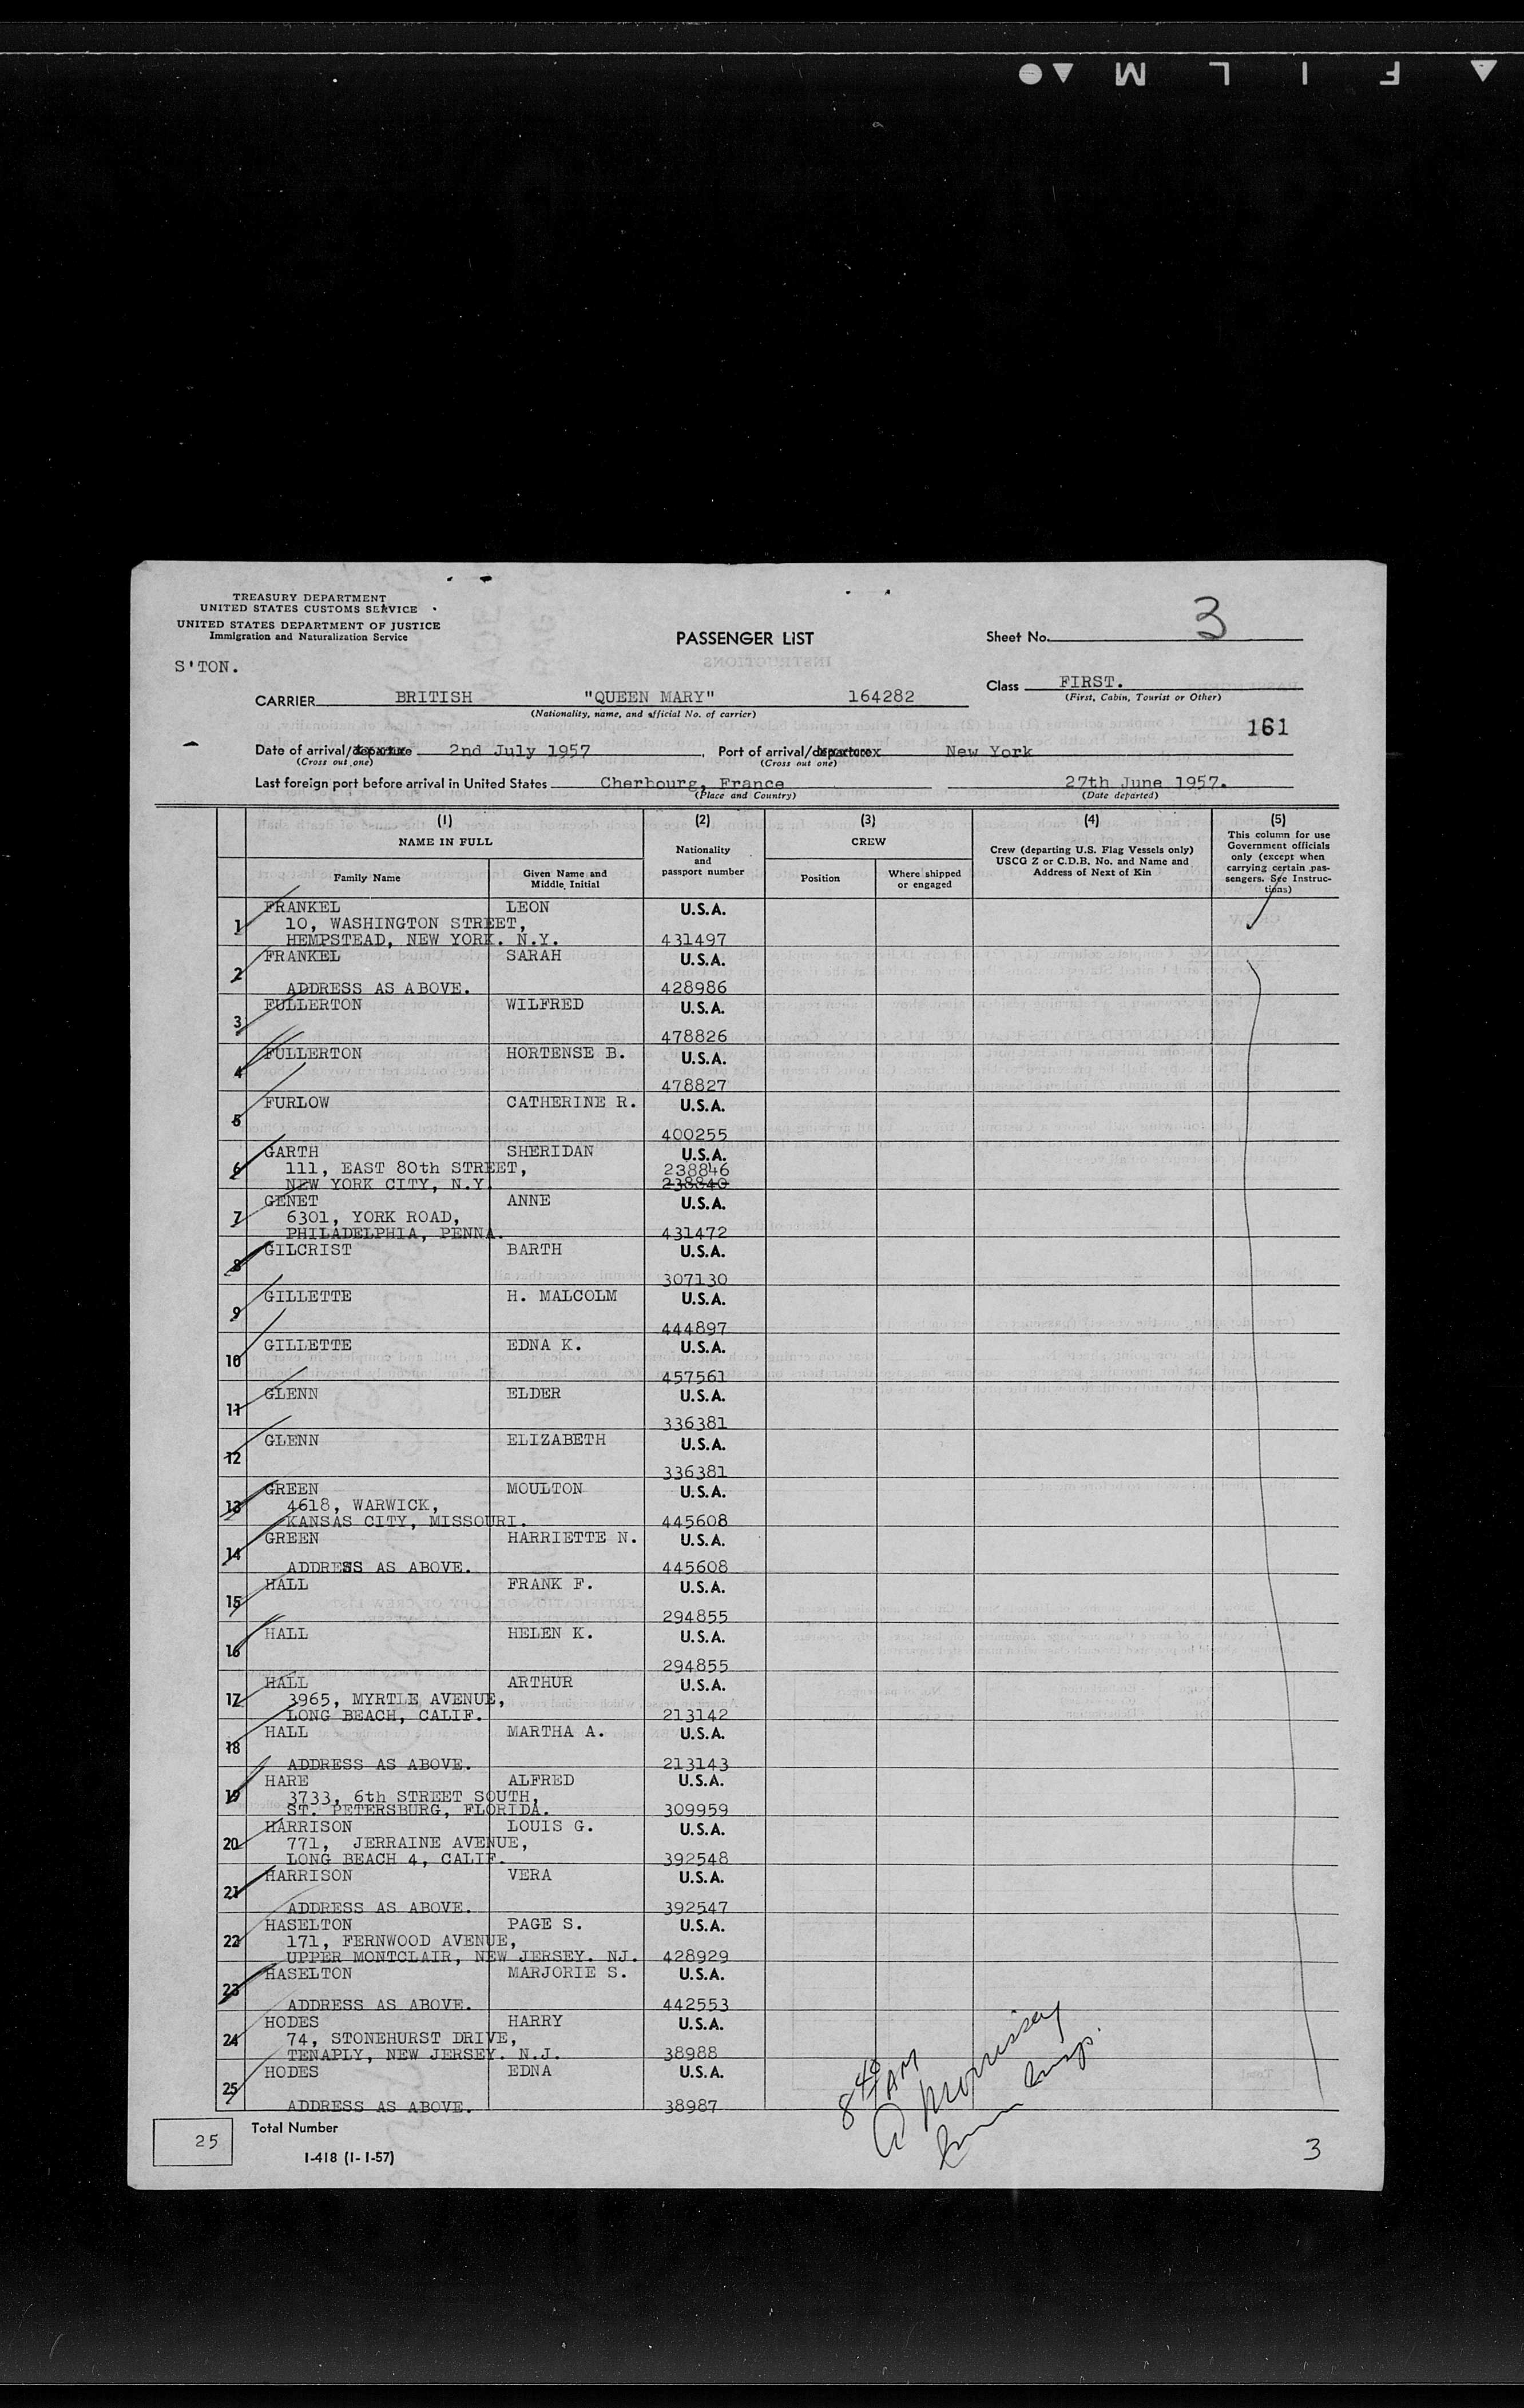 F I L M
TREASURY DEPARTMENT
UNITED STATES CUSTOMS SERVICE
UNITED STATES DEPARTMENT OF JUSTICE
Immigration and Naturalization Service
S'TON.
PASSENGER LIST
Sheet No. 3
Class FIRST.
(First, Cabin, Tourist or Other)
CARRIER BRITISH "QUEEN MARY" 164282
(Nationality, name, and official No. of carrier)
161
Date of arrival/departure 2nd July 1957, Port of arrival/departure New York
(Cross out one) (Cross out one)
Last foreign port before arrival in United States Cherbourg, France 27th June 1957.
(Place and Country) (Date departed)
(1) (2) (3) (4) (5)
NAME IN FULL
Family Name
Given Name and Middle Initial
Nationality and passport number
CREW
Position
Where shipped or engaged
Crew (departing U.S. Flag Vessels only) USCG Z or C.D.B. No. and Name and Address of Next of Kin
This column for use Government officials only (except when carrying certain passengers. See Instructions)
1 FRANKEL LEON U.S.A.
10, WASHINGTON STREET,
HEMPSTEAD, NEW YORK. N.Y. 431497
2 FRANKEL SARAH U.S.A.
ADDRESS AS ABOVE. 428986
3 FULLERTON WILFRED U.S.A.
478826
4 FULLERTON HORTENSE B. U.S.A.
478827
5 FURLOW CATHERINE R. U.S.A.
400255
6 GARTH SHERIDAN U.S.A.
111, EAST 80th STREET, 238846
NEW YORK CITY, N.Y. 238840
7 GENET ANNE U.S.A.
6301, YORK ROAD,
PHILADELPHIA, PENNA. 431472
8 GILCRIST BARTH U.S.A.
307130
9 GILLETTE H. MALCOLM U.S.A.
444897
10 GILLETTE EDNA K. U.S.A.
457561
11 GLENN ELDER U.S.A.
336381
12 GLENN ELIZABETH U.S.A.
336381
13 GREEN MOULTON U.S.A.
4618, WARWICK,
KANSAS CITY, MISSOURI. 445608
14 GREEN HARRIETTE N. U.S.A.
ADDRESS AS ABOVE. 445608
15 HALL FRANK F. U.S.A.
294855
16 HALL HELEN K. U.S.A.
294855
17 HALL ARTHUR U.S.A.
3965, MYRTLE AVENUE,
LONG BEACH, CALIF. 213142
18 HALL MARTHA A. U.S.A.
ADDRESS AS ABOVE. 213143
19 HARE ALFRED U.S.A.
3733, 6th STREET SOUTH,
ST. PETERSBURG, FLORIDA. 309959
20 HARRISON LOUIS G. U.S.A.
771, JERRAINE AVENUE,
LONG BEACH 4, CALIF. 392548
21 HARRISON VERA U.S.A.
ADDRESS AS ABOVE. 392547
22 HASELTON PAGE S. U.S.A.
171, FERNWOOD AVENUE,
UPPER MONTCLAIR, NEW JERSEY. NJ. 428929
23 HASELTON MARJORIE S. U.S.A.
ADDRESS AS ABOVE. 442553
24 HODES HARRY U.S.A.
74, STONEHURST DRIVE,
TENAPLY, NEW JERSEY. N.J. 38988
25 HODES EDNA U.S.A.
ADDRESS AS ABOVE. 38987
8 40 AM
Morrissey
Insp.
25 Total Number
I-418 (1-1-57)
3